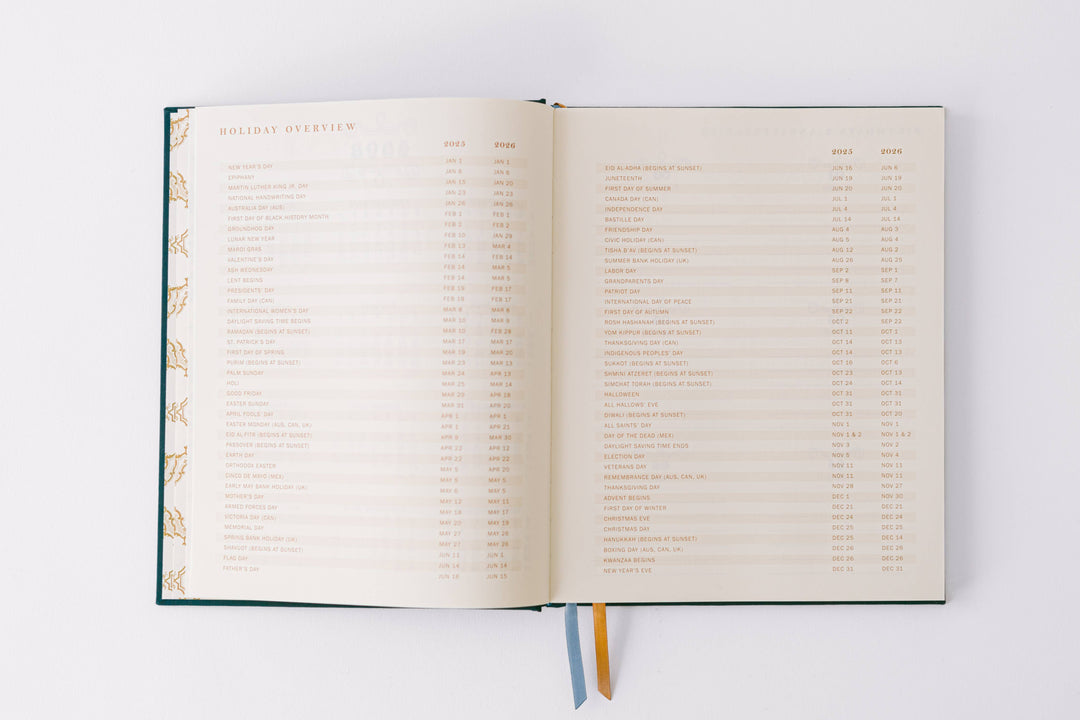 HOLIDAY OVERVIEW
2025 2026
NEW YEAR'S DAY JAN 1 JAN 1
EPIPHANY JAN 6 JAN 6
MARTIN LUTHER KING JR. DAY JAN 15 JAN 20
NATIONAL HANDWRITING DAY JAN 23 JAN 23
AUSTRALIA DAY (AUS) JAN 26 JAN 26
FIRST DAY OF BLACK HISTORY MONTH FEB 1 FEB 1
GROUNDHOG DAY FEB 2 FEB 2
LUNAR NEW YEAR FEB 10 JAN 29
MARDI GRAS FEB 13 MAR 4
VALENTINE'S DAY FEB 14 FEB 14
ASH WEDNESDAY FEB 14 MAR 5
LENT BEGINS FEB 14 MAR 5
PRESIDENTS' DAY FEB 19 FEB 17
FAMILY DAY (CAN) FEB 19 FEB 17
INTERNATIONAL WOMEN'S DAY MAR 8 MAR 8
DAYLIGHT SAVING TIME BEGINS MAR 10 MAR 9
RAMADAN (BEGINS AT SUNSET) MAR 10 FEB 28
ST. PATRICK'S DAY MAR 17 MAR 17
FIRST DAY OF SPRING MAR 19 MAR 20
PURIM (BEGINS AT SUNSET) MAR 23 MAR 13
PALM SUNDAY MAR 24 APR 13
HOLI MAR 25 MAR 14
GOOD FRIDAY MAR 29 APR 18
EASTER SUNDAY MAR 31 APR 20
APRIL FOOLS' DAY APR 1 APR 1
EASTER MONDAY (AUS, CAN, UK) APR 1 APR 21
EID AL FITR (BEGINS AT SUNSET) APR 9 MAR 30
PASSOVER (BEGINS AT SUNSET) APR 22 APR 12
EARTH DAY APR 22 APR 22
ORTHODOX EASTER MAY 5 APR 20
CINCO DE MAYO (MEX) MAY 5 MAY 5
EARLY MAY BANK HOLIDAY (UK) MAY 6 MAY 5
MOTHER'S DAY MAY 12 MAY 11
ARMED FORCES DAY MAY 18 MAY 17
VICTORIA DAY (CAN) MAY 20 MAY 19
MEMORIAL DAY MAY 27 MAY 26
SPRING BANK HOLIDAY (UK) MAY 27 MAY 26
SHAVUOT (BEGINS AT SUNSET) JUN 11 JUN 1
FLAG DAY JUN 14 JUN 14
FATHER'S DAY JUN 16 JUN 15
2025 2026
EID AL-ADHA (BEGINS AT SUNSET) JUN 16 JUN 6
JUNETEENTH JUN 19 JUN 19
FIRST DAY OF SUMMER JUN 20 JUN 20
CANADA DAY (CAN) JUL 1 JUL 1
INDEPENDENCE DAY JUL 4 JUL 4
BASTILLE DAY JUL 14 JUL 14
FRIENDSHIP DAY AUG 4 AUG 3
CIVIC HOLIDAY (CAN) AUG 5 AUG 4
TISHA B'AV (BEGINS AT SUNSET) AUG 12 AUG 2
SUMMER BANK HOLIDAY (UK) AUG 26 AUG 25
LABOR DAY SEP 2 SEP 1
GRANDPARENTS DAY SEP 8 SEP 7
PATRIOT DAY SEP 11 SEP 11
INTERNATIONAL DAY OF PEACE SEP 21 SEP 21
FIRST DAY OF AUTUMN SEP 22 SEP 22
ROSH HASHANAH (BEGINS AT SUNSET) OCT 2 SEP 22
YOM KIPPUR (BEGINS AT SUNSET) OCT 11 OCT 1
THANKSGIVING DAY (CAN) OCT 14 OCT 13
INDIGENOUS PEOPLES' DAY OCT 14 OCT 13
SUKKOT (BEGINS AT SUNSET) OCT 16 OCT 6
SHMINI ATZERET (BEGINS AT SUNSET) OCT 23 OCT 13
SIMCHAT TORAH (BEGINS AT SUNSET) OCT 24 OCT 14
HALLOWEEN OCT 31 OCT 31
ALL HALLOWS' EVE OCT 31 OCT 31
DIWALI (BEGINS AT SUNSET) OCT 31 OCT 20
ALL SAINTS' DAY NOV 1 NOV 1
DAY OF THE DEAD (MEX) NOV 1 & 2 NOV 1 & 2
DAYLIGHT SAVING TIME ENDS NOV 3 NOV 2
ELECTION DAY NOV 5 NOV 4
VETERANS DAY NOV 11 NOV 11
REMEMBRANCE DAY (AUS, CAN, UK) NOV 11 NOV 11
THANKSGIVING DAY NOV 28 NOV 27
ADVENT BEGINS DEC 1 NOV 30
FIRST DAY OF WINTER DEC 21 DEC 21
CHRISTMAS EVE DEC 24 DEC 24
CHRISTMAS DAY DEC 25 DEC 25
HANUKKAH (BEGINS AT SUNSET) DEC 25 DEC 14
BOXING DAY (AUS, CAN, UK) DEC 26 DEC 26
KWANZAA BEGINS DEC 26 DEC 26
NEW YEAR'S EVE DEC 31 DEC 31